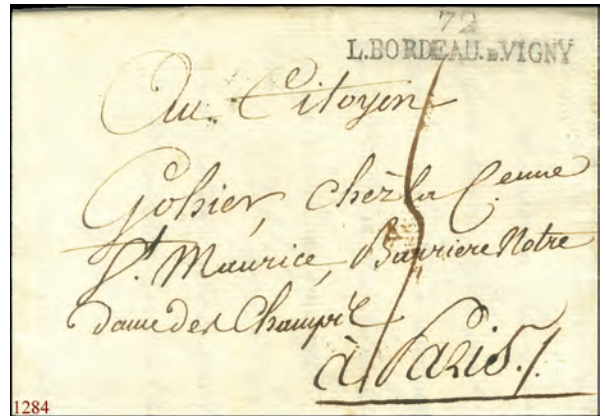 72
L.BORDEAU.D.VIGNY
Au Citoyen
Gohier, chèz la C.enne
St. Maurice, Barriere Notre
dame des Champs
à Paris./.
5
1284